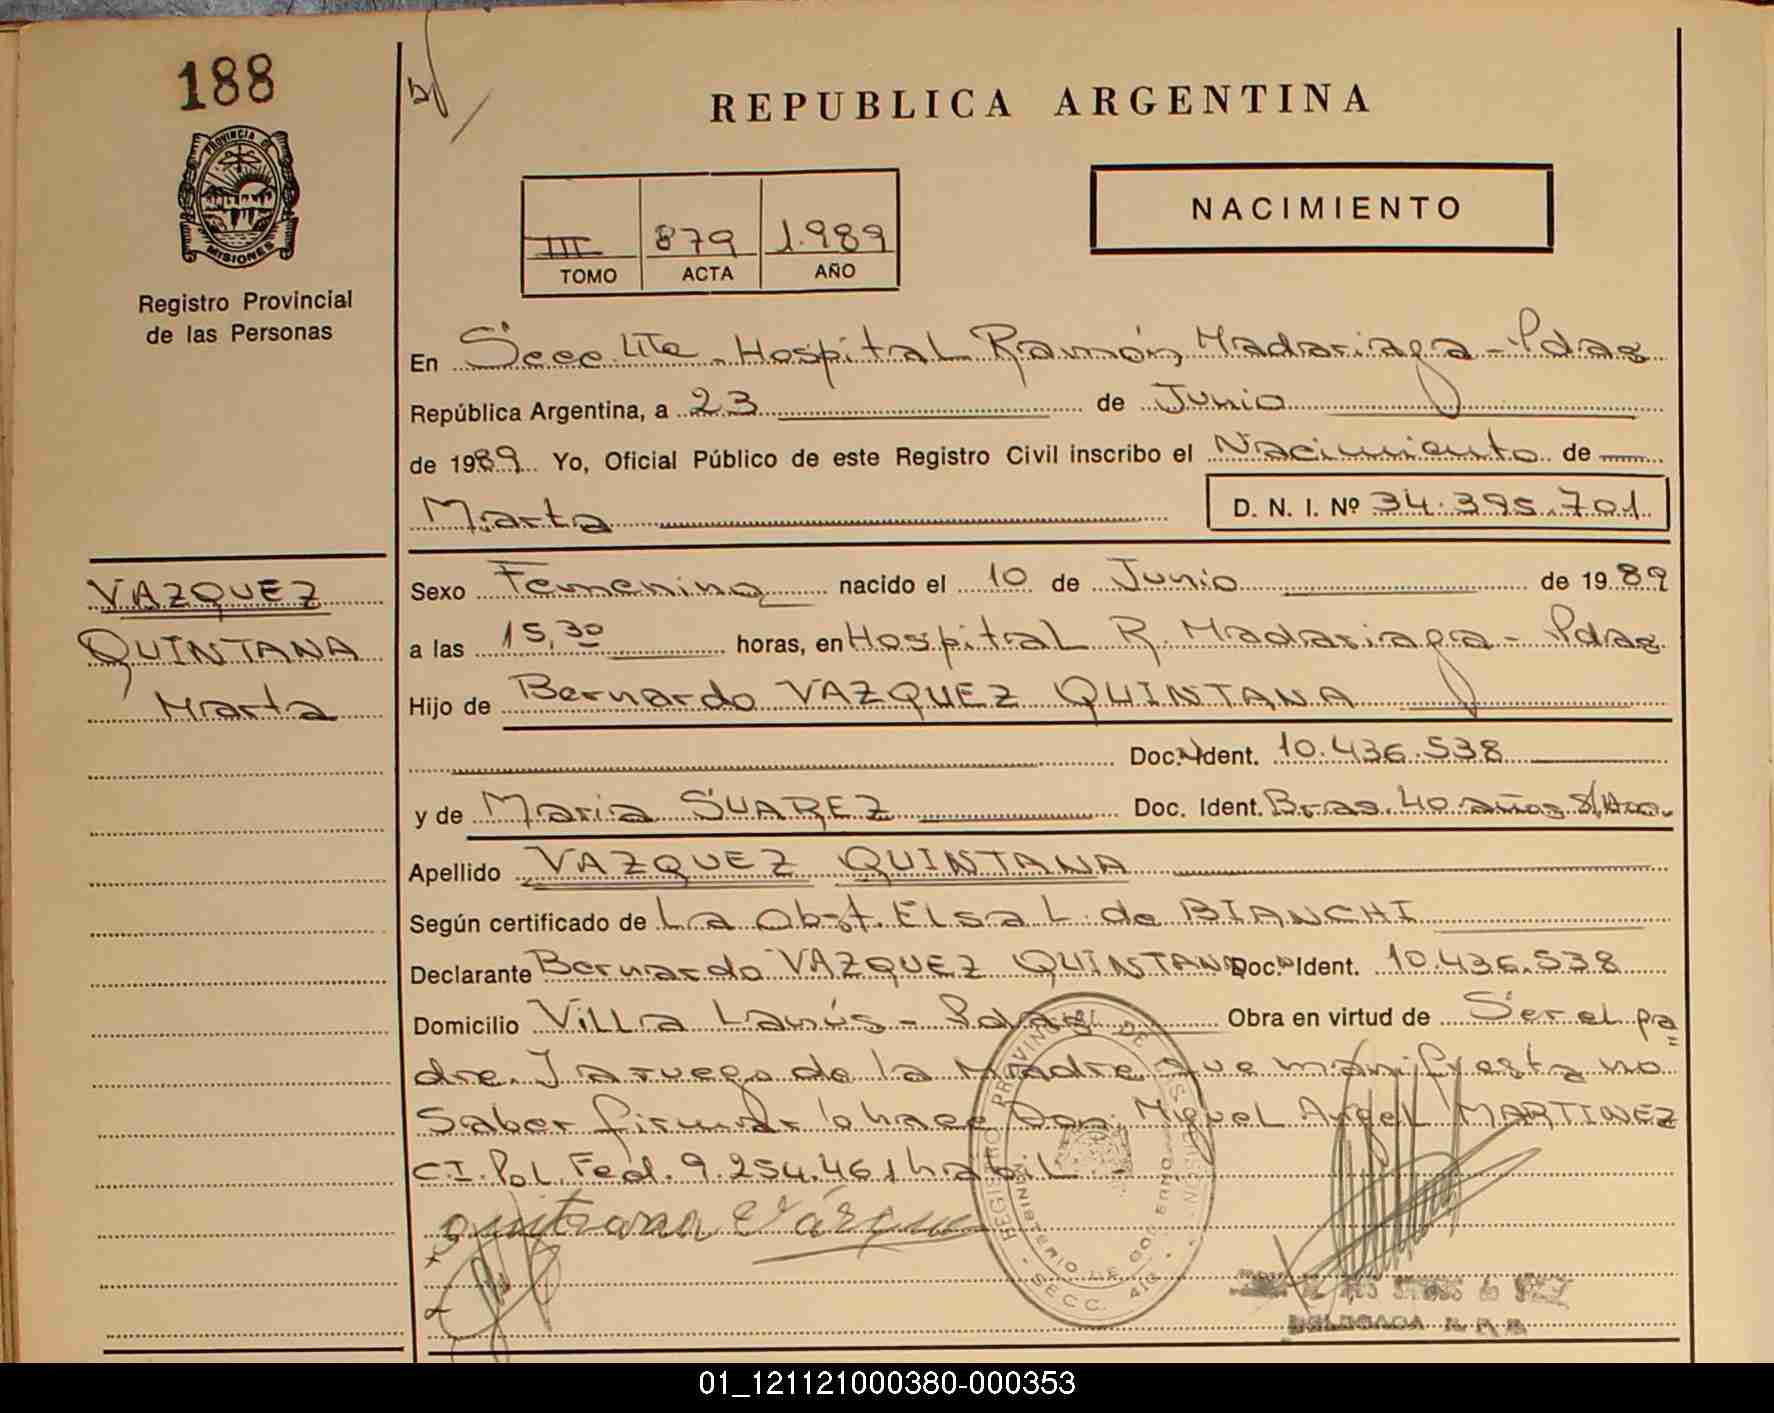 188
PROVINCIA DE
MISIONES
Registro Provincial
de las Personas
REPUBLICA ARGENTINA
III 879 1.989
TOMO ACTA AÑO
NACIMIENTO
En Secc 4ta - Hospital Ramón Madariaga - Pdas
República Argentina, a 23 de Junio
de 1989 Yo, Oficial Público de este Registro Civil inscribo el Nacimiento de
Marta D. N. I. Nº 34.395.701
VAZQUEZ
QUINTANA
Marta
Sexo Femenino nacido el 10 de Junio de 1989
a las 15,30 horas, en Hospital R. Madariaga - Pdas.
Hijo de Bernardo VAZQUEZ QUINTANA
Doc. Ident. 10.436.538
y de Maria SUAREZ Doc. Ident. Bras. 40 años
Apellido VAZQUEZ QUINTANA
Según certificado de La Obst. Elsa L. de BIANCHI
Declarante Bernardo VAZQUEZ QUINTANA Doc. Ident. 10.436.538
Domicilio Villa Lanús - Pdas Obra en virtud de Ser el pa
dre. I a ruego de la Madre que manifiesta no
Saber firmar lo hace Don: Miguel Angel MARTINEZ
C.I. Pol. Fed. 9.254.461 habil -
Quintana Vázque
REGISTRO PROVINCIAL DE LAS PERSONAS
MINISTERIO DE GOBIERNO - MISIONES
SECC. 4ta
DELEGADA R. P. P.
01_121121000380-000353